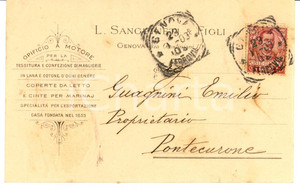 L. SANG FIGLI
GENOVA
OPIFICIO A MOTORE
PER LA
TESSITURA E CONFEZIONE DI MAGLIERIE
IN LANA E COTONE D'OGNI GENERE
COPERTE DA LETTO
E CINTE PER MARINAI
SPECIALITÀ PER L'ESPORTAZIONE
CASA FONDATA NEL 1835
GENOVA
Guagnini Emilio
Proprietario
Pontecurone